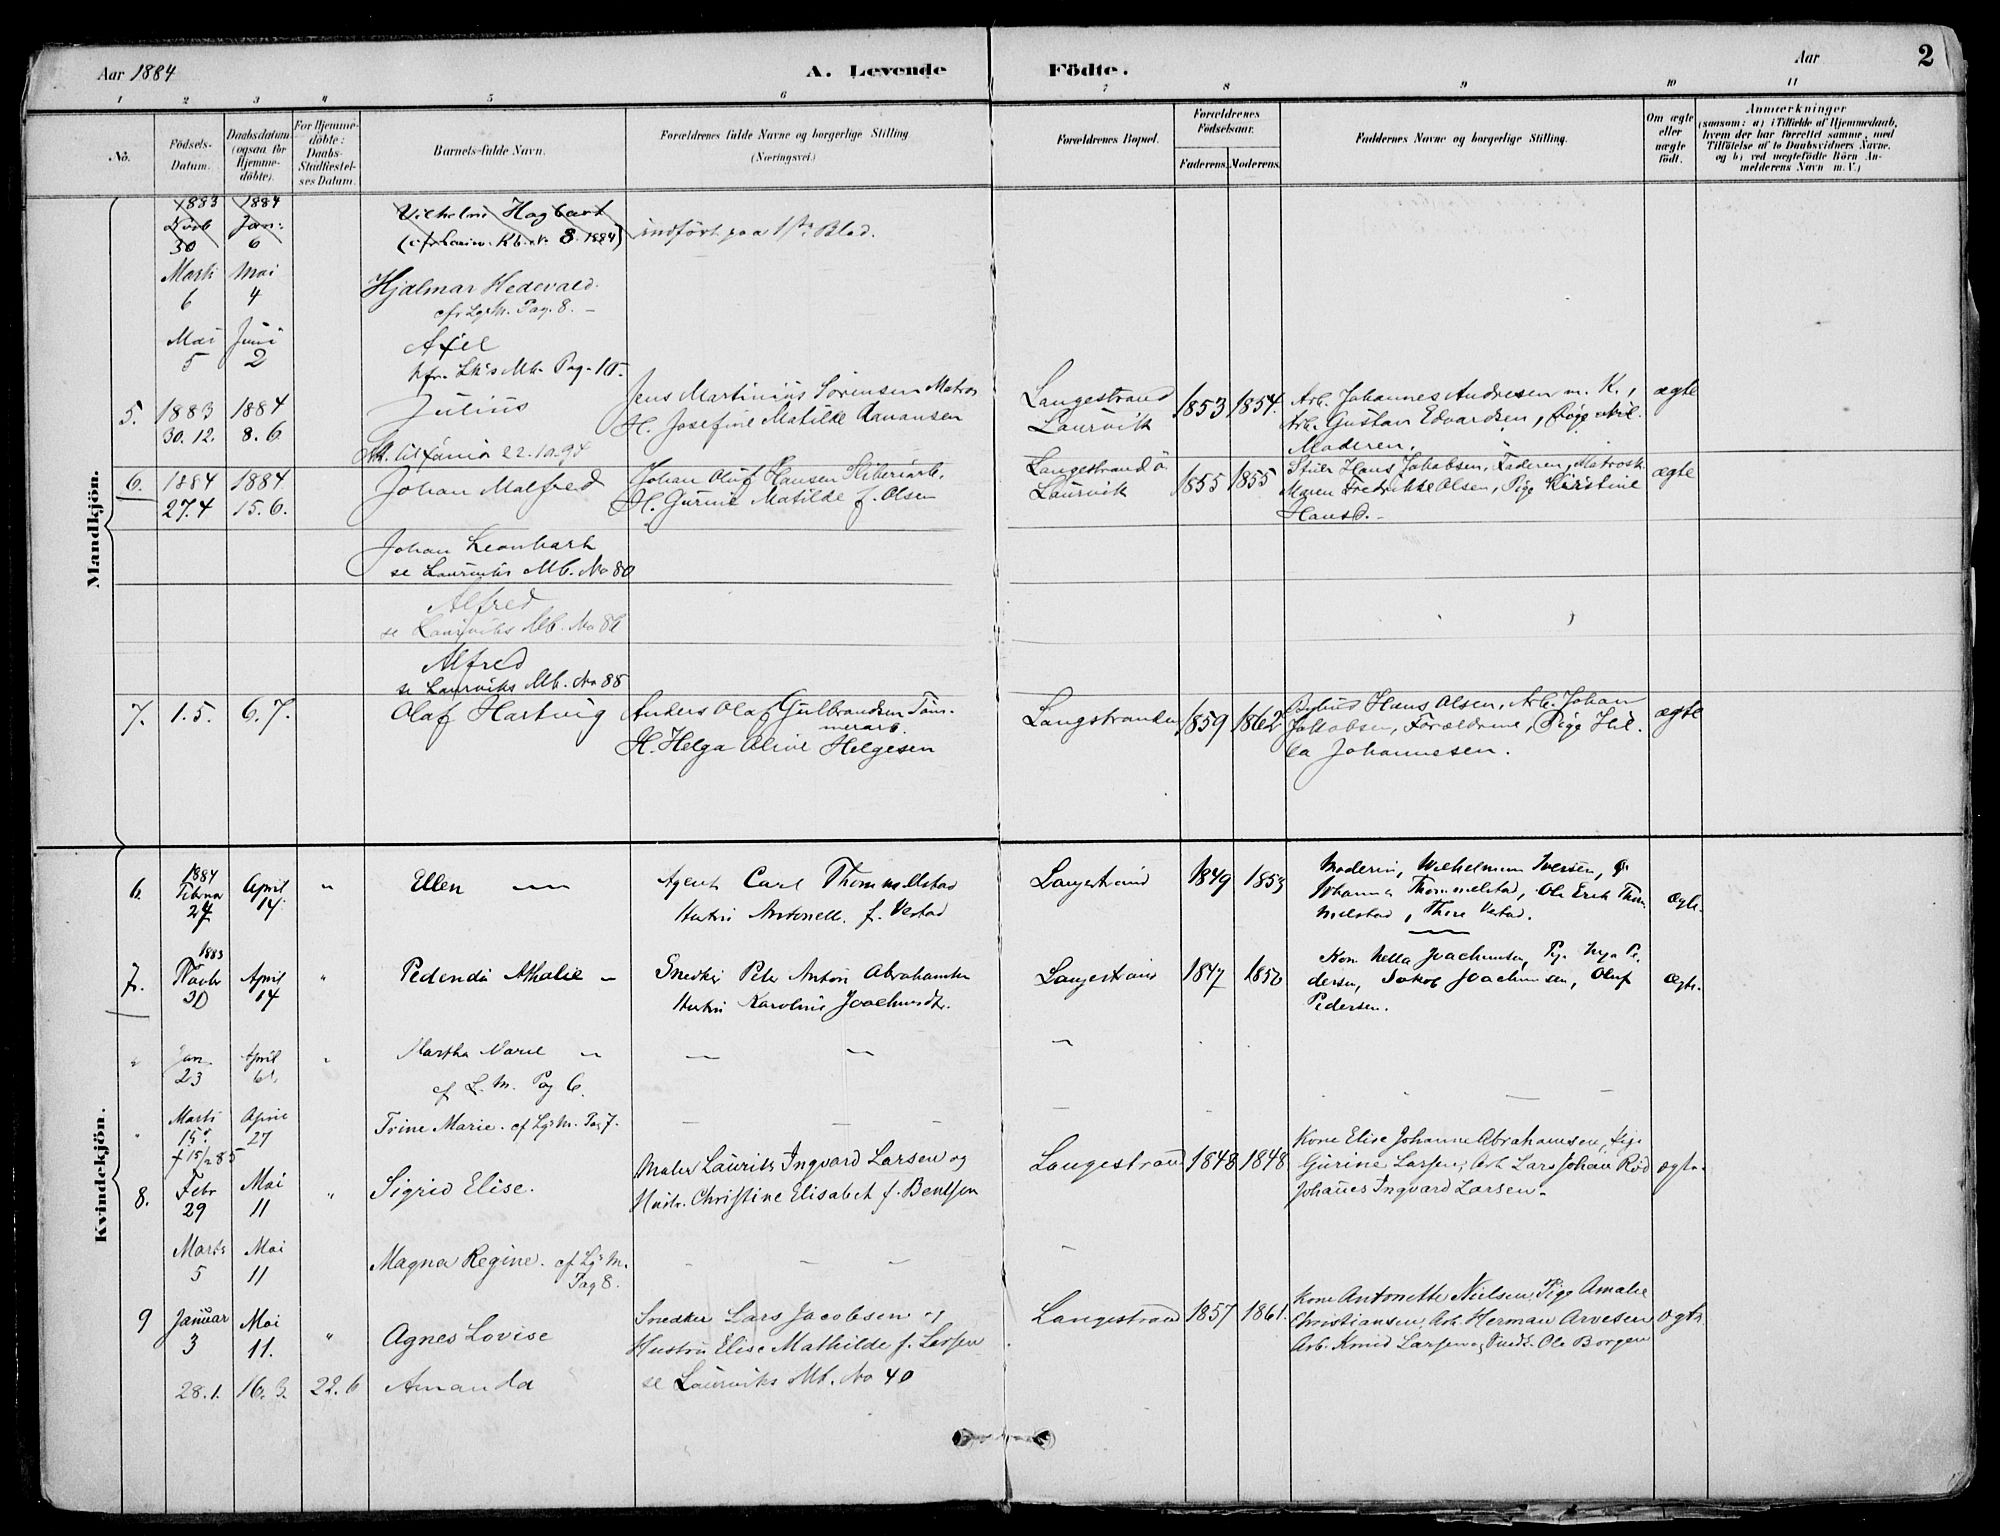 Aar 1884
A. Levende Födte.
Aar 2
1 2 3 4 5 6 7 8 9 10 11
No.
Födsels-Datum.
Daabsdatum (ogsaa for Hjemme-döbte).
For Hjemme-döbte: Daabs-Stadfæstel-ses Datum.
Barnets fulde Navn.
Forældrenes fulde Navne og borgerlige Stilling (Næringsvei.)
Forældrenes Bopæl.
Forældrenes Födselsaar.
Faderens. Moderens.
Faddernes Navne og borgerlige Stilling.
Om ægte eller uægte födt.
Anmærkninger
(saasom: a) i Tilfælde af Hjemmedaab,
hvem der har forrettet samme, med
Tilföielse af to Daabsvidners Navne,
og b) ved uægtefödte Börn An-
melderens Navn m. V.)
Mandkjön.
1883 1884
30 6 Vilhelm Hagbart indfört paa 1ste Blad.
8. 1884)
Marts Mai
6 4 Hjalmar Hedevald
Pag. 8. -
Mai Juni
5 2 Axel
Pag. 10.
5. 1883 1884 Julius Jens Martinius Sörensen Matros Langestrand 1853 1854. Arb. Johannes Andresen m. K., ægte
30.12. 8.6 H. Josefine Matilde Laurvik Gustav Edvardsen,
22.10.94 Moderen.
6. 1884 1884 Johan Malfred Johan Oluf Hansen Langestrand Hans Jakobsen, Faderen, Matrosk. ægte
27.4 15.6. H. Gurine Matilde f. Olsen Laurvik 1855 1855 Maren Fredrikke Olsen, Pige Kirstine
Hansd. -
Johan Leonhart
se Laurviks Mb. No 80
Alfred
se Laurviks Mb. No 86
Alfred
se Laurviks Mb. No 88
7. 1.5. 6.7. Olaf Hartvig Anders Olaf Gulbrandsen Töm- Langstranden 1859 1862 Hans Olsen, Arb. Johan ægte
merarb. Jakobsen, Forældrene, Pige Hil-
H. Helga Olive Helgesen da Johannesen.
Kvindekjön.
6. 1884
April 14. " Ellen Agent Carl Langestrand 1849 1853 Moderen, Iversen, ægte.
27 f. Vestad Johanna Thommelstad, Ole Erik Thom-
melstad, Thore Vestad.
7. 1883
30 April 14 " Athalie - Snedker Peter Anton Abrahamsen Langestrand 1847 1850 Kone Joachimsen, Pige Inga Pe- ægte.
dersen, Jakob Joachimsen, Oluf
Pedersen.
" Jan 23 April " Martha Marie
cf L. M. Pag 6.
" Marts 15 April 27 Trine Marie. cf Lgs M. Pag 7.
† 15/2 85
8. Febr 29 Mai 11 " Sigrid Elise. Maler Laurits Ingvard Larsen og Langestrand 1848 1848 Kone Elise Johanne Abrahamsen, Pige ægte.
Hustr. Christine Elisabet f. Bentsen Gurine Larsen, Arb. Lars Johan Röd
Johanes Ingvard Larsen.
Marts 5 Mai 11 Magna Regine. cf Lgs M.
Pag 8.
9 Januar 3 Mai 11. " Agnes Lovise Snedker Lars Jacobsen og Langestrand 1857 1861. Kone Antonette Nielsen, Pige Amalie ægte
Hustru Elise Mathilde f. Larsen Christiansen, Arb. Herman Arvesen
Arb. Knud Larsen og Ole Borgen
28.1. 16.3. 22.6 Amanda se Laurviks Mb. No 40